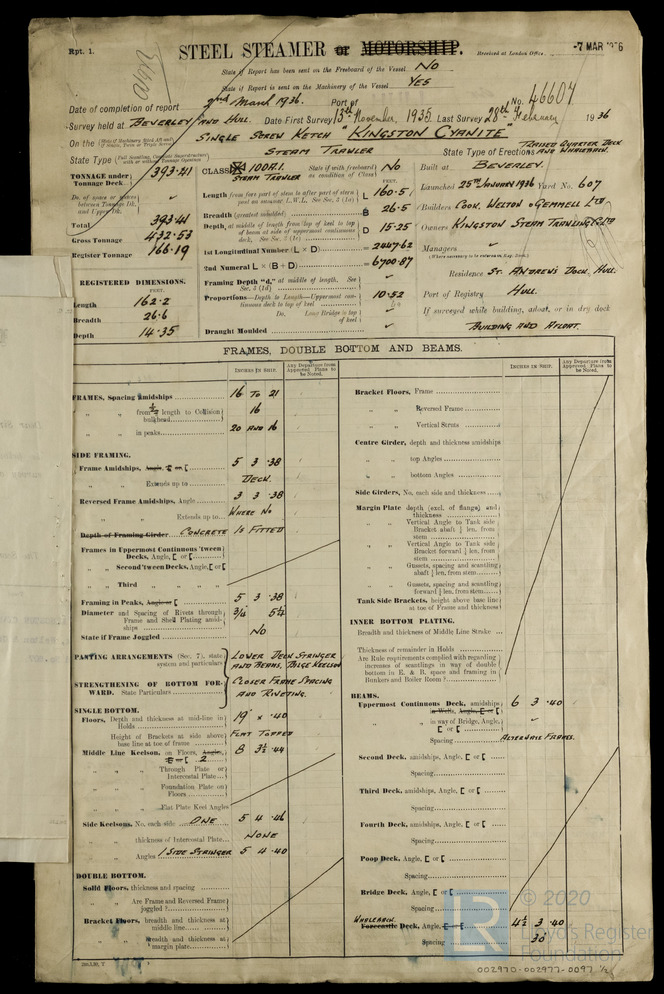 Rpt. 1.
STEEL STEAMER or MOTORSHIP.
Received at London Office
-7 MAR 1936
State if Report has been sent on the Freeboard of the Vessel No
State if Report is sent on the Machinery of the Vessel Yes
Date of completion of report 2nd March 1936. Port of
No. 46607
Survey held at Beverley and Hull. Date First Survey 13th November, 1935. Last Survey 28th February 1936
On the Single Screw Ketch "Kingston Cyanite"
Steam Trawler
State Type
State Type of Erections Raised Quarter Deck and Whaleback.
TONNAGE under Tonnage Deck 393.41
Do. of space or spaces between Tonnage Dk. and Upper Dk.
Total 393.41
Gross Tonnage 432.53
Register Tonnage 166.19
REGISTERED DIMENSIONS.
FEET.
Length 162.2
Breadth 26.6
Depth 14.35
CLASS 100A1. Steam Trawler
State if with freeboard as condition of Class No
FEET.
Length from fore part of stem to after part of stern post on summer L.W.L. See Sec. 3 (1a) L 160.5
Breadth (greatest moulded) B 26.5
Depth, at middle of length from top of keel to top of beam at side of uppermost continuous deck. See Sec. 3 (1c) D 15.25
1st Longitudinal Number (L × D) = 2447.62
2nd Numeral L × (B + D) = 6700.87
Framing Depth "d," at middle of length. See Sec. 3 (1d)
Proportions—Depth to Length—Uppermost continuous deck to top of keel 10.52
Do. Long Bridge to top of keel
Draught Moulded
Built at Beverley.
Launched 25th January 1936 Yard No. 607
Builders Cook, Welton & Gemmell Ltd
Owners Kingston Steam Trawling Co Ltd
Managers
(Where necessary to be entered in Reg. Book.)
Residence St. Andrew's Dock, Hull.
Port of Registry Hull.
If surveyed while building, afloat, or in dry dock
Building and Afloat.
FRAMES, DOUBLE BOTTOM AND BEAMS.
INCHES IN SHIP.
Any Departure from Approved Plans to be Noted.
INCHES IN SHIP.
Any Departure from Approved Plans to be Noted.
FRAMES, Spacing amidships 16 to 21
" " from 1/5 length to Collision bulkhead 16
" " in peaks 20 and 16
SIDE FRAMING.
Frame Amidships, Angle, E or [ 5 3 .38
" " Extends up to Deck.
Reversed Frame Amidships, Angle 3 3 .38
" " Extends up to Where No
Depth of Framing Girder Concrete Is Fitted
Frames in Uppermost Continuous 'tween Decks, Angle, E or [
" Second 'tween Decks, Angle, E or [
" Third " " "
Framing in Peaks, Angle or [ 5 3 .38
Diameter and Spacing of Rivets through Frame and Shell Plating amidships 3/4 5 1/4
State if Frame Joggled No
PANTING ARRANGEMENTS (Sec. 7), state system and particulars Lower Deck Stringer and Beams, Bilge Keelson
STRENGTHENING OF BOTTOM FORWARD. State Particulars Closer Frame Spacing and Riveting.
SINGLE BOTTOM.
Floors, Depth and thickness at mid-line in Holds 19 × .40
Height of Brackets at side above base line at toe of frame Flat Topped
Middle Line Keelson, on Floors, Angle, E or [ 2 8 3 1/2 .44
" " Through Plate or Intercostal Plate
" " Foundation Plate on Floors
" " Flat Plate Keel Angles
Side Keelsons, No. each side One 5 4 .46
" " thickness of Intercostal Plate None
" " Angles 1 Side Stringer 5 4 .40
DOUBLE BOTTOM.
Solid Floors, thickness and spacing
" " Are Frame and Reversed Frame joggled?
Bracket Floors, breadth and thickness at middle line
" " breadth and thickness at margin plate
Bracket Floors, Frame
" " Reversed Frame
" " Vertical Struts
Centre Girder, depth and thickness amidships
" " top Angles
" " bottom Angles
Side Girders, No. each side and thickness
Margin Plate depth (excl. of flange) and thickness
" " Vertical Angle to Tank side Bracket abaft 1/4 len. from stem
" " Vertical Angle to Tank side Bracket forward 1/4 len. from stem
" " Gussets, spacing and scantling abaft 1/4 len. from stem
" " Gussets, spacing and scantling forward 1/4 len. from stem
Tank Side Brackets, height above base line at toe of Frame and thickness
INNER BOTTOM PLATING.
Breadth and thickness of Middle Line Strake
Thickness of remainder in Holds
Are Rule requirements complied with regarding increases of scantlings in way of double bottom in E. & B. space and framing in Bunkers and Boiler Room?
BEAMS.
Uppermost Continuous Deck, amidships in Wells, Angle, E or [ 6 3 .40
" " in way of Bridge, Angle, E or [
Spacing Alternate Frames.
Second Deck, amidships, Angle, E or [
Spacing
Third Deck, amidships, Angle, E or [
Spacing
Fourth Deck, amidships, Angle, E or [
Spacing
Poop Deck, Angle, E or [
Spacing
Bridge Deck, Angle, E or [
Spacing
Whaleback. Forecastle Deck, Angle, E or [ 4 1/2 3 .40
Spacing 30
© 2020
Lloyd's Register
Foundation
002970-002977-0097 1/2